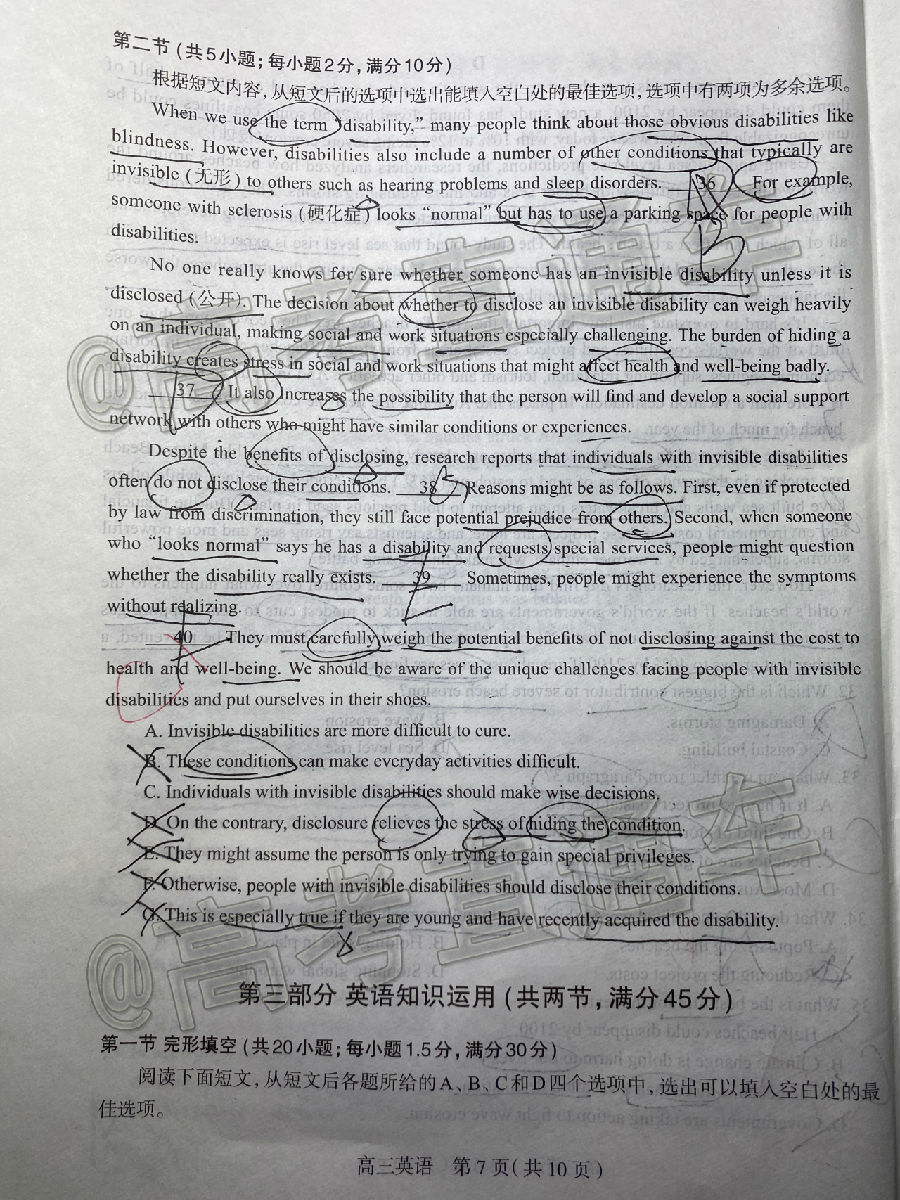 第二节(共5小题;每小题2分,满分10分)
根据短文内容,从短文后的选项中选出能填入空白处的最佳选项,选项中有两项为多余选项。
When we use the term “disability,” many people think about those obvious disabilities like
blindness. However, disabilities also include a number of other conditions that typically are
invisible (无形) to others such as hearing problems and sleep disorders. 36 For example,
someone with sclerosis (硬化症) looks “normal” but has to use a parking space for people with
disabilities.
No one really knows for sure whether someone has an invisible disability unless it is
disclosed (公开). The decision about whether to disclose an invisible disability can weigh heavily
on an individual, making social and work situations especially challenging. The burden of hiding a
disability creates stress in social and work situations that might affect health and well-being badly.
37 It also increases the possibility that the person will find and develop a social support
network with others who might have similar conditions or experiences.
Despite the benefits of disclosing, research reports that individuals with invisible disabilities
often do not disclose their conditions. 38 Reasons might be as follows. First, even if protected
by law from discrimination, they still face potential prejudice from others. Second, when someone
who “looks normal” says he has a disability and requests special services, people might question
whether the disability really exists. 39 Sometimes, people might experience the symptoms
without realizing.
40 They must carefully weigh the potential benefits of not disclosing against the cost to
health and well-being. We should be aware of the unique challenges facing people with invisible
disabilities and put ourselves in their shoes.
A. Invisible disabilities are more difficult to cure.
B. These conditions can make everyday activities difficult.
C. Individuals with invisible disabilities should make wise decisions.
D. On the contrary, disclosure relieves the stress of hiding the condition.
E. They might assume the person is only trying to gain special privileges.
F. Otherwise, people with invisible disabilities should disclose their conditions.
G. This is especially true if they are young and have recently acquired the disability.
第三部分 英语知识运用(共两节,满分45分)
第一节 完形填空(共20小题;每小题1.5分,满分30分)
阅读下面短文,从短文后各题所给的A、B、C和D四个选项中,选出可以填入空白处的最
佳选项。
高三英语 第7页(共10页)
@高考直通车
@高考直通车